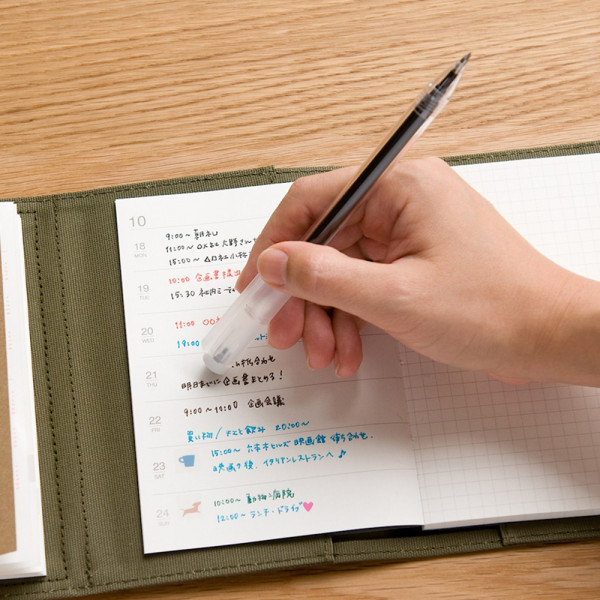 10
18
MON
9:00〜 朝礼
11:00〜 〇×社 大野さん
15:00〜 △□社 小林
19
TUE
10:00 企画書提出
15:30 社内ミーティ
20
WED
11:00 〇〇
19:00
21
THU
打ち合わせ
明日までに企画書まとめる!
22
FRI
9:00〜10:00 企画会議
買い物/チエと飲み 20:00〜
23
SAT
15:00〜 六本木ヒルズ 映画館 待ち合わせ.
映画の後、イタリアンレストランへ ♪
24
SUN
10:00〜 動物病院
12:00〜 ランチ・ドライブ